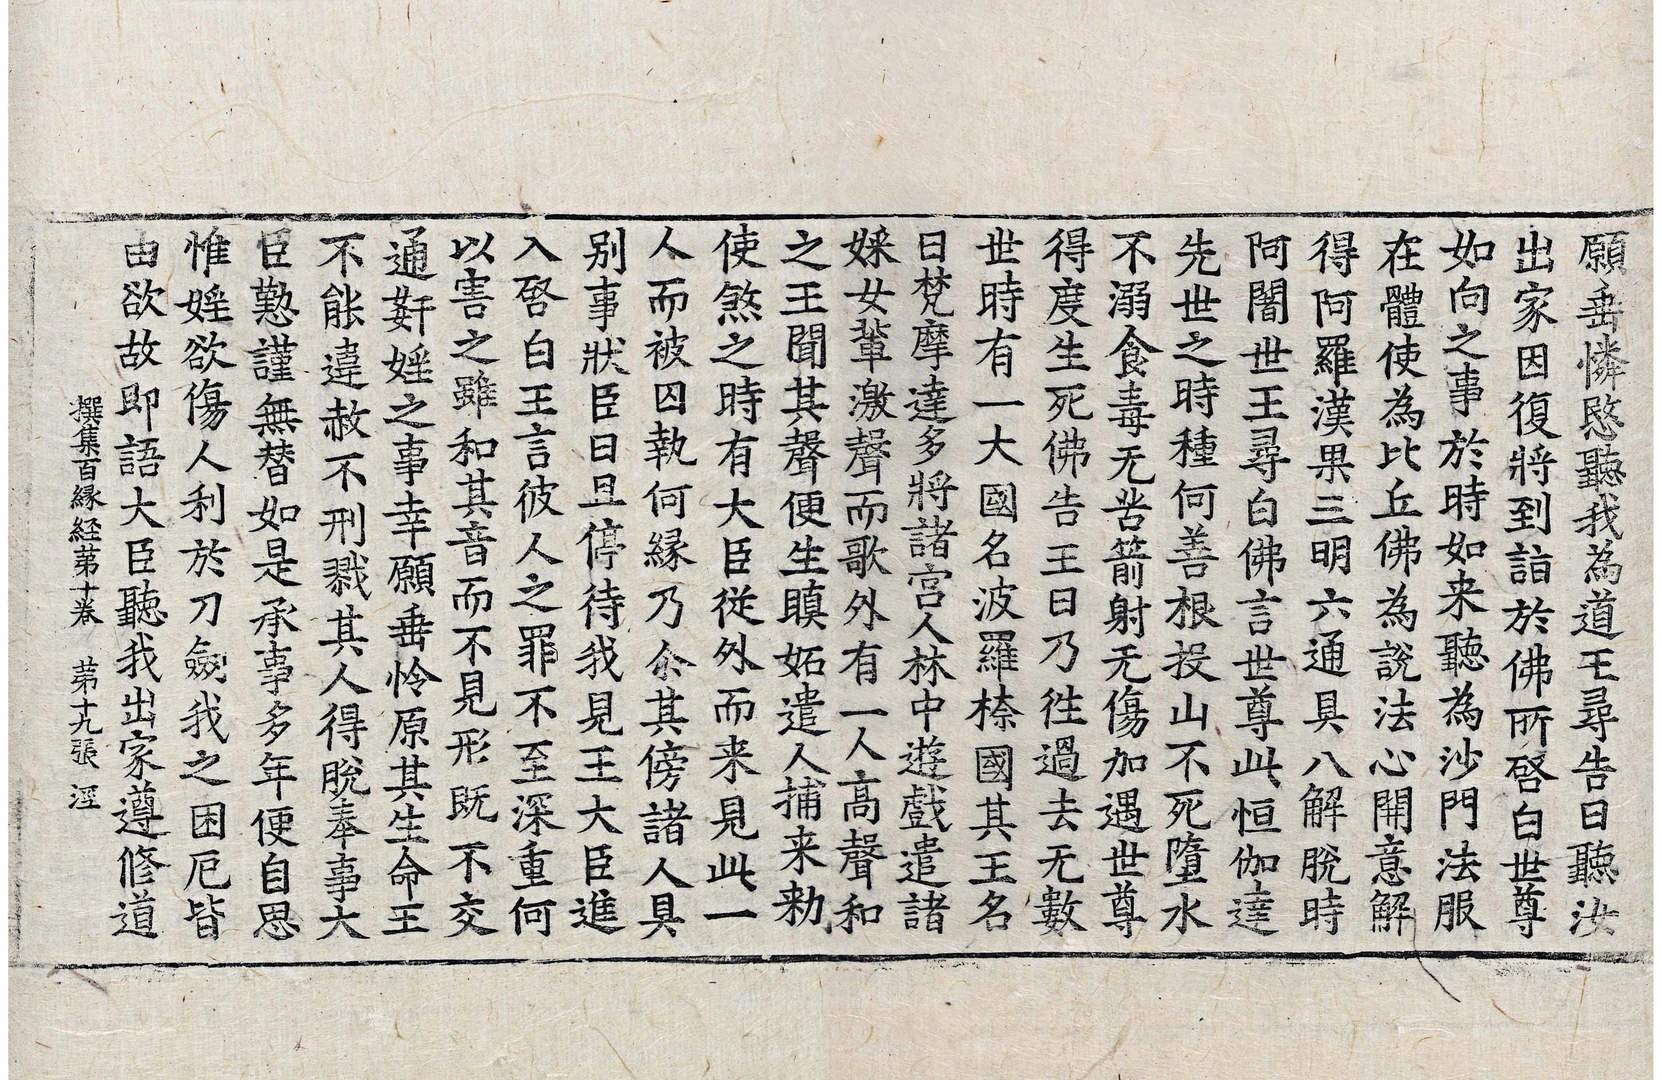 願垂憐愍聽我為道王尋告曰聽汝
出家因復將到詣於佛所啓白世尊
如向之事於時如来聽為沙門法服
在體使為比丘佛為說法心開意解
得阿羅漢果三明六通具八解脫時
阿闍世王尋白佛言世尊此恒伽達
先世之時種何善根投山不死墮水
不溺食毒无苦箭射无傷加遇世尊
得度生死佛告王曰乃徃過去无數
世時有一大國名波羅㮈國其王名
曰梵摩達多將諸宮人林中遊戲遣諸
婇女輩激聲而歌外有一人高聲和
之王聞其聲便生瞋妬遣人捕来勑
使煞之時有大臣従外而来見此一
人而被囚執何縁乃尒其傍諸人具
别事狀臣曰且停待我見王大臣進
入啓白王言彼人之罪不至深重何
以害之雖和其音而不見形既不交
通姧婬之事幸願垂怜原其生命王
不能違赦不刑戮其人得脫奉事大
臣懃謹無替如是承事多年便自思
惟婬欲傷人利於刀劒我之困厄皆
由欲故即語大臣聽我出家遵修道
撰集百縁経苐十卷　苐十九張　涇